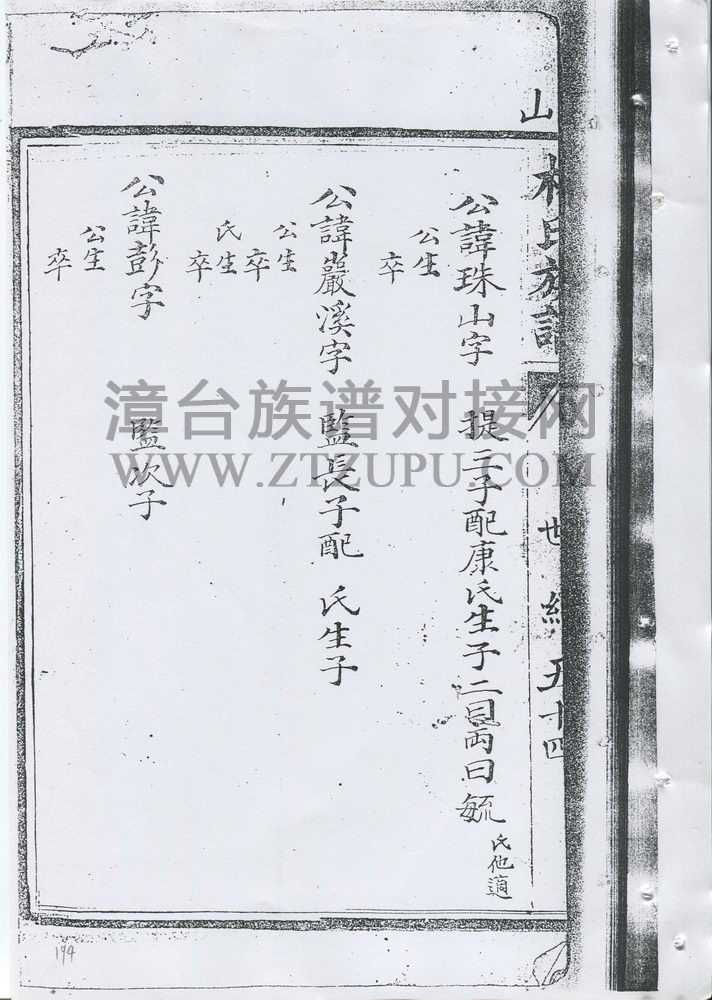 山
林氏族譜
八
世
五十四
公諱珠山字 提三子配康氏生子二曰兩曰毓 氏他適
公生
卒
公諱巖溪字 監長子配 氏生子
公生
卒
氏生
卒
公諱彭字 監次子
公生
卒
漳台族谱对接网
WWW.ZTZUPU.COM
194